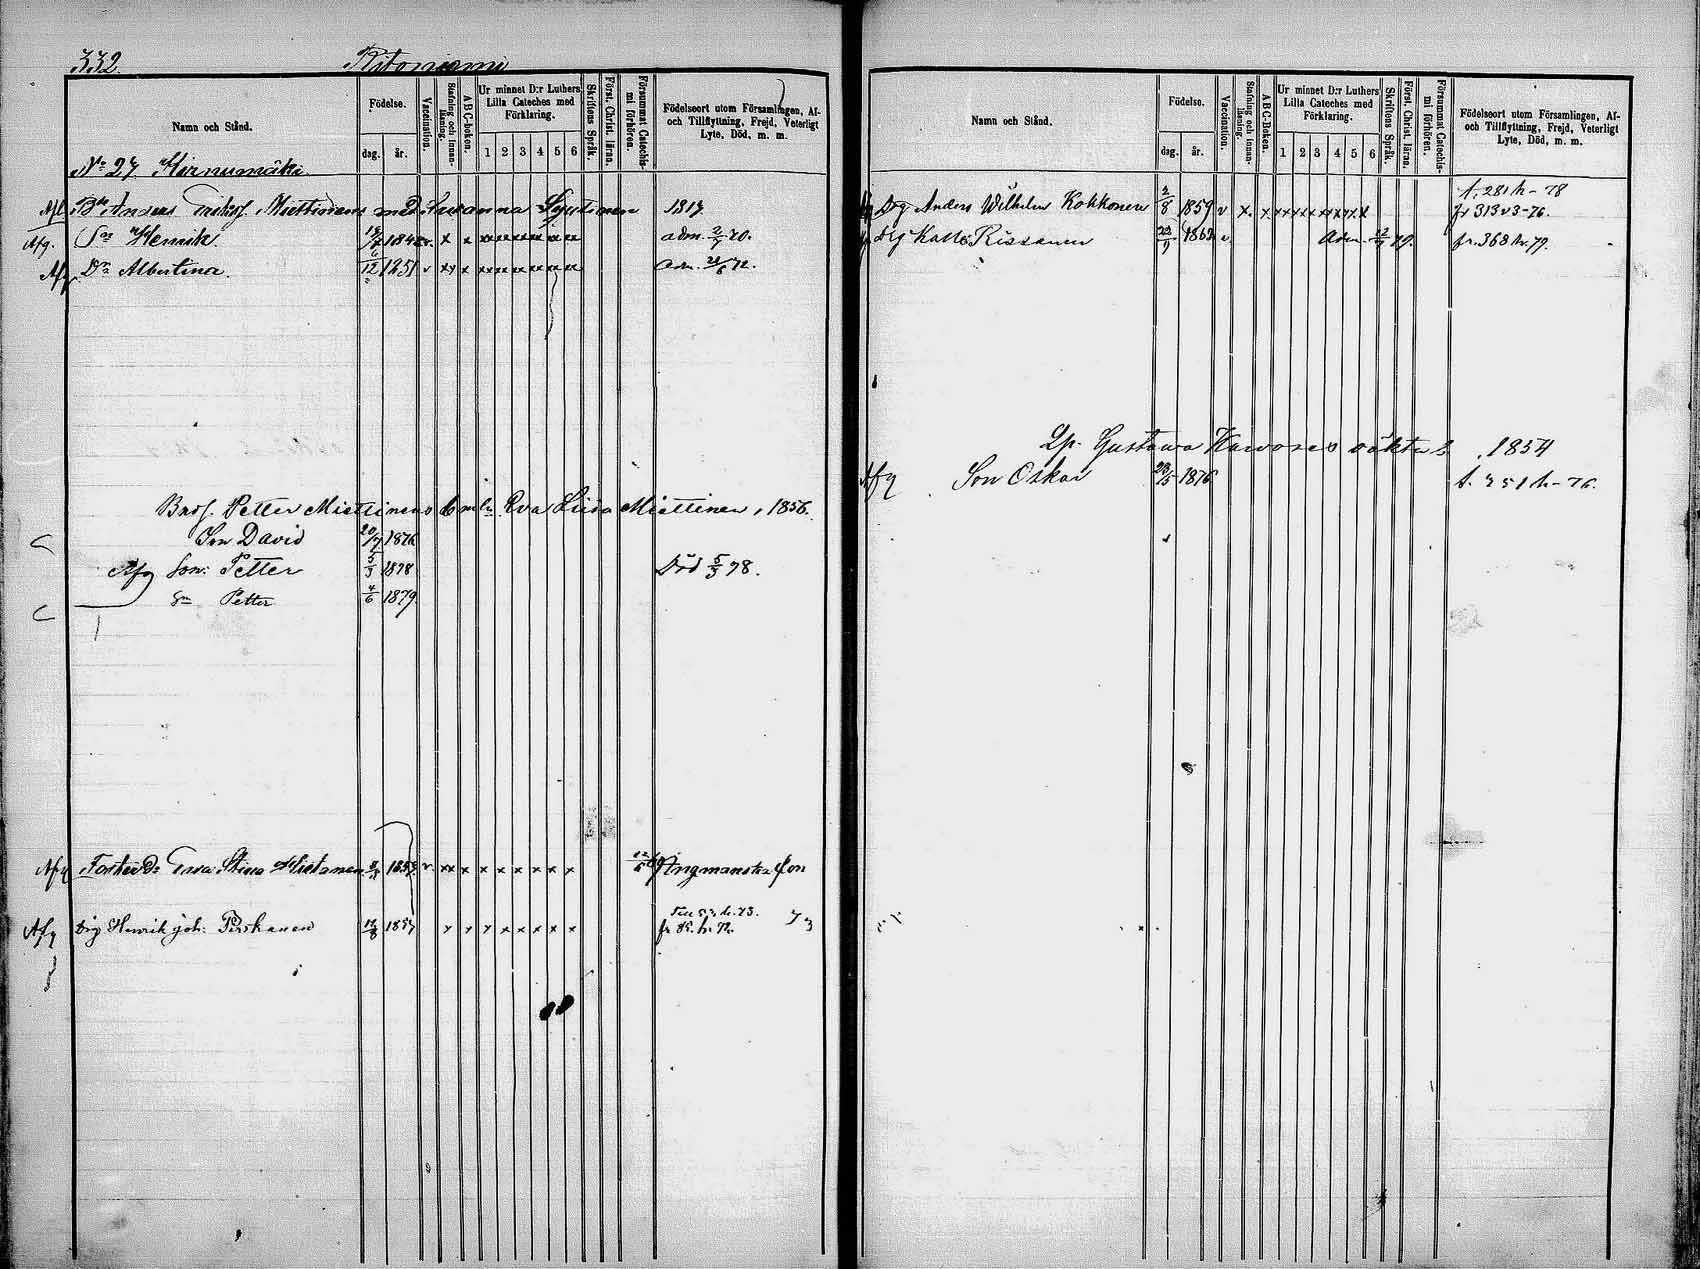 332. Ritoniemi
Namn och Stånd.
Födelse.
dag. år.
Vaccination.
Stafning och innan-läsning.
A B C-boken.
Ur minnet D:r Luthers Lilla Cateches med Förklaring.
1 2 3 4 5 6
Skriftens Språk.
Först. Christ. läran.
Försummat Catechismi förhören.
Födelseort utom Församlingen, Af- och Tillflyttning, Frejd, Veterligt Lyte, Död, m. m.
No 27 Kirnumäki
Afl. Bn Anders Miettinens med Susanna 1817
Afg. Sn Henrik adm. 70.
Afg Dr Albertina 6/12 1851 v x x x adm. 72.
Brof. Petter Miettinens Eva Lisa Miettinen, 1856.
Son David 20/7 1876
Afg Son: Petter 5/3 1878 Död 5/3 78.
Sn Petter 4/6 1879.
Afg Foster Dr Eva Stina v. xx x x x x x x x
Till h. 73.
Afg Drg Henrik Joh: 1857 x x x x x x x x fr h. 72. 73
Namn och Stånd.
Födelse.
dag. år.
Vaccination.
Stafning och innan-läsning.
A B C-Boken.
Ur minnet D:r Luthers Lilla Cateches med Förklaring.
1 2 3 4 5 6
Skriftens Språk.
Först. Christ. läran.
Försummat Catechismi förhören.
Födelseort utom Församlingen, Af- och Tillflyttning, Frejd, Veterligt Lyte, Död, m. m.
t. 281 h- 78
Drg Anders Wilhelm Kokkonen 2/8 1859 v x. x x x x x x x x fr 313 v 3-76.
drg Kalle Rissanen 1862 v. adm 79. fr. 368 h. 79.
Gustawa oäkta 1854
Afg Son Oskar 23/5 1876 t. 251 h- 76.